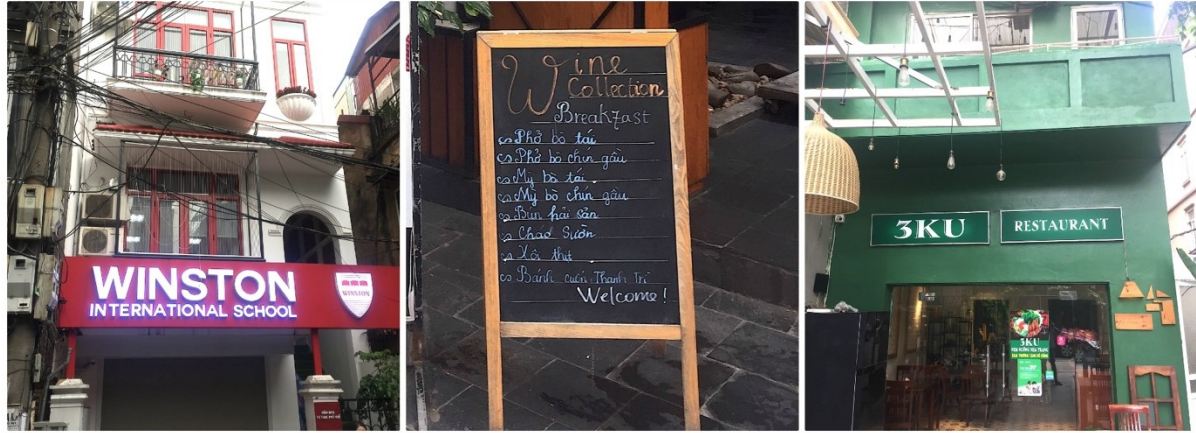 WINSTON
INTERNATIONAL SCHOOL
WINSTON
Wine
Collection
Breakfast
Phở bò tái
Phở bò chín gầu
Mỳ bò tái
Mỳ bò chín gầu
Bún hải sản
Cháo Sườn
Xôi thịt
Bánh cuốn Thanh Trì
Welcome!
3KU
RESTAURANT
3KU